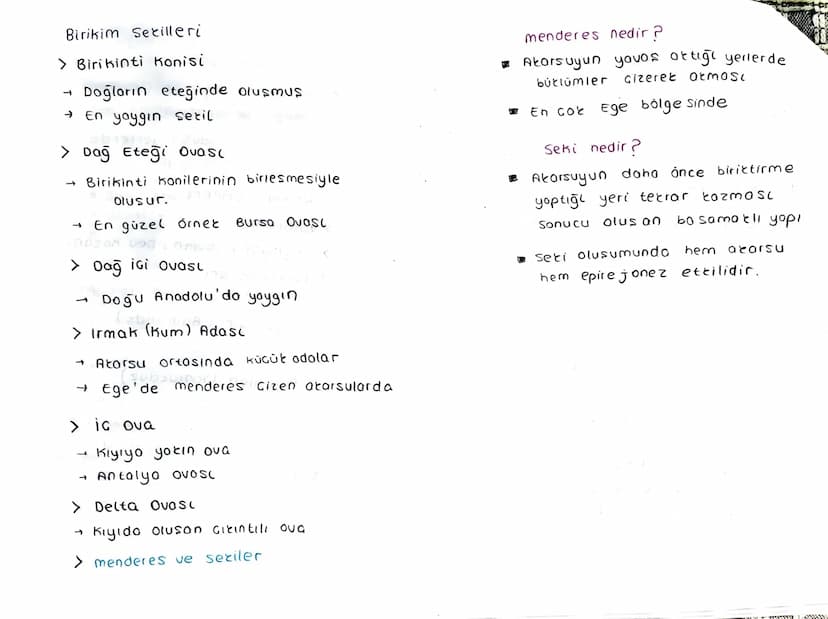 Birikim Şekilleri
> Birikinti Konisi
→ Dağların eteğinde oluşmuş
→ En yaygın şekil
> Dağ Eteği Ovası
→ Birikinti konilerinin birleşmesiyle
oluşur.
→ En güzel örnek Bursa Ovası
> Dağ içi Ovası
→ Doğu Anadolu'da yaygın
> Irmak (Kum) Adası
→ Akarsu ortasında küçük adalar
→ Ege'de menderes çizen akarsularda
> iç ova
→ Kıyıya yakın ova
→ Antalya ovası
> Delta Ovası
→ Kıyıda oluşan çıkıntılı ova
> menderes ve sekiler
menderes nedir?
▪ Akarsuyun yavaş aktığı yerlerde
büklümler çizerek akması
▪ En çok Ege bölgesinde
Seki nedir?
▪ Akarsuyun daha önce biriktirme
yaptığı yeri tekrar kazması
sonucu oluşan basamaklı yapı
▪ Seki oluşumunda hem akarsu
hem epirejonez etkilidir.